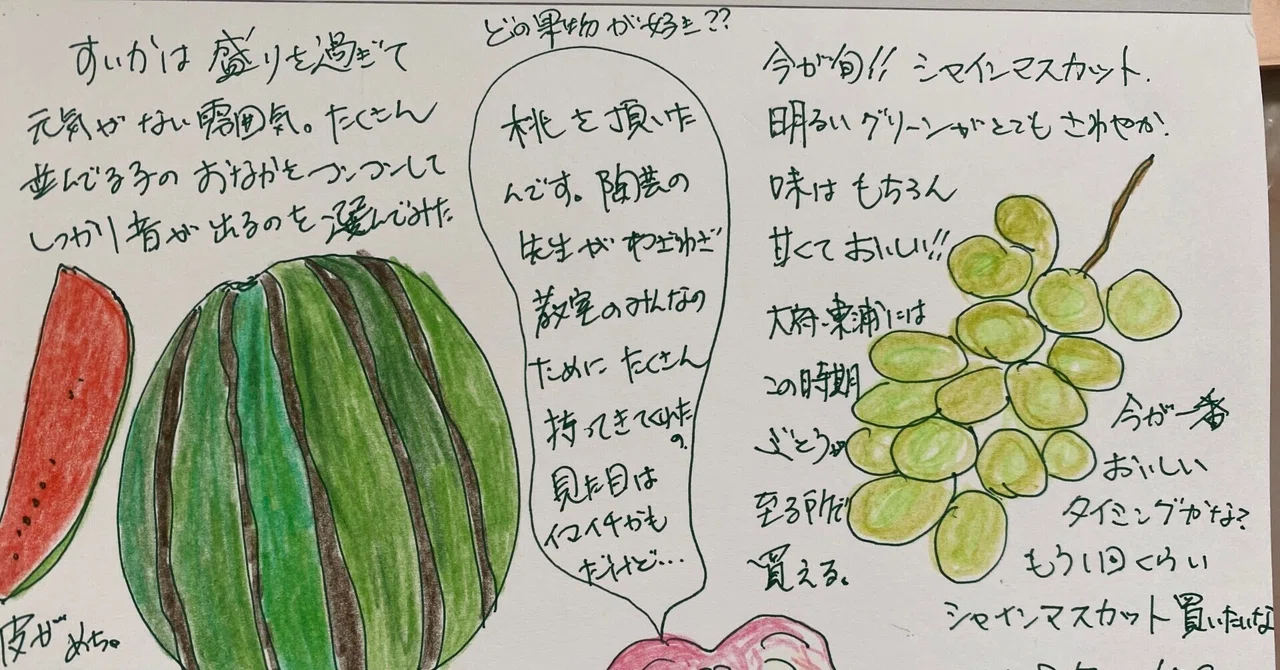 どの果物が好き??
すいかは盛りを過ぎて
元気がない雰囲気。たくさん
並んでる子のおなかをツンツンして
しっかり音が出るのを選んでみた
皮がめちゃ
桃を頂いた
んです。陶芸の
先生がわざわざ
教室のみんなの
ためにたくさん
持ってきてくれたの。
見た目は
イマイチかも
だけど…
今が旬!! シャインマスカット.
明るいグリーンがとてもさわやか.
味はもちろん
甘くておいしい!!
大府、東浦には
この時期
ぶどうが
至る所で
買える。
今が一番
おいしい
タイミングかな?
もう1回くらい
シャインマスカット買いたいな